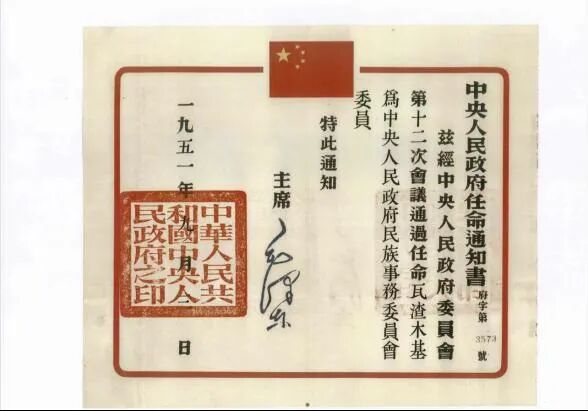 中央人民政府任命通知書
府字第 3573 號
茲經中央人民政府委員會
第十二次會議通過任命瓦渣木基
爲中央人民政府民族事務委員會
委員
特此通知
主席 毛澤東
一九五一年九月 日
中華人民共
和國中央人
民政府之印